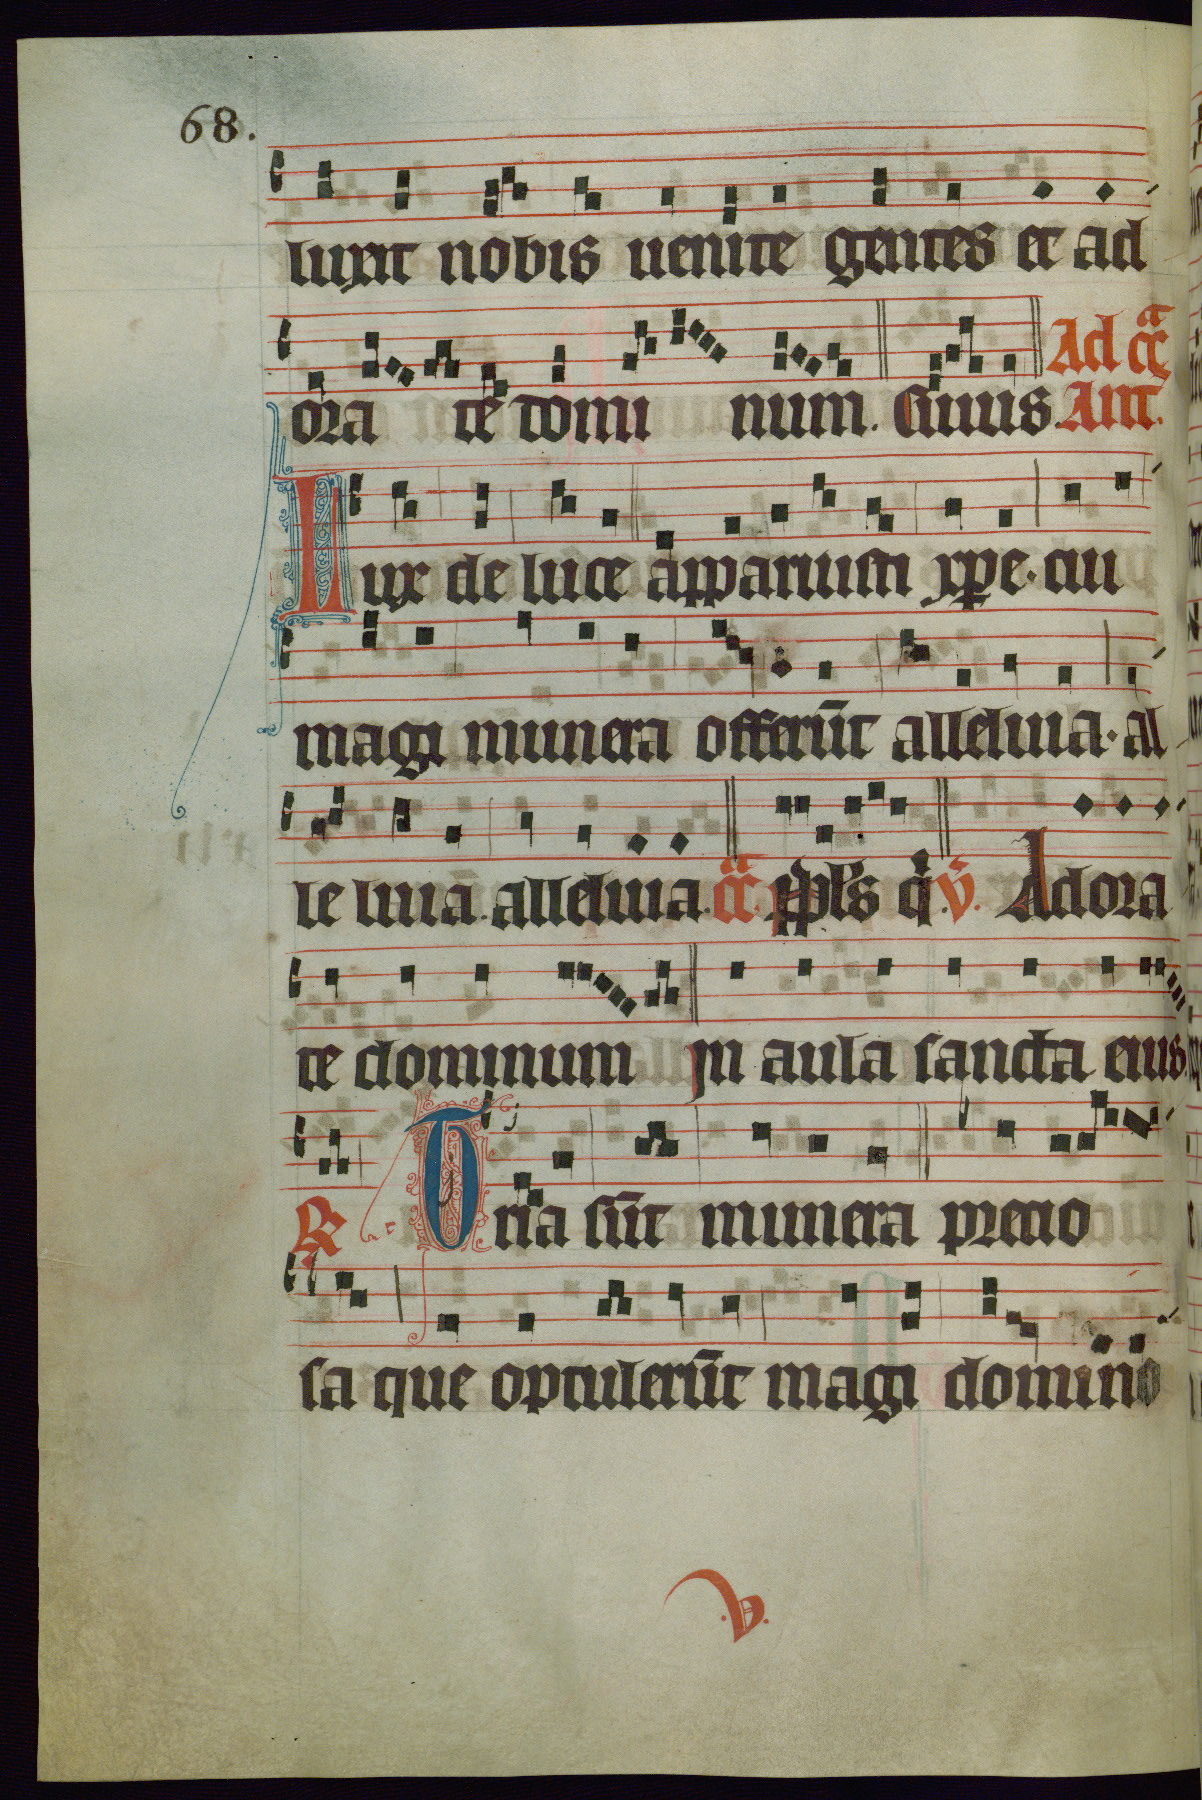 68.
luxit nobis uenite gentes et ad
ora te domi num. Ciuius. Ad cca
Ant.
Lux de luce apparuisti xpe. cui
magi munera offerūt alleluia. al
le luia. alleluia. cca. ppls q̄. v̄. Adora
te dominum In aula sancta eius
R Tria sūt munera precio
sa que optulerūt magi domino
.v.